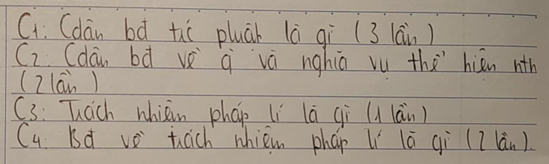 C1: Cdân bđ tríc pluật là gì (3 lần)
C2: Cdân bđ về q và nghĩa vụ thể hiện nth
(2 lần)
C3: Trách nhiệm pháp lí là gì (1 lần)
C4: Bđ về trách nhiệm pháp lí là gì (2 lần).